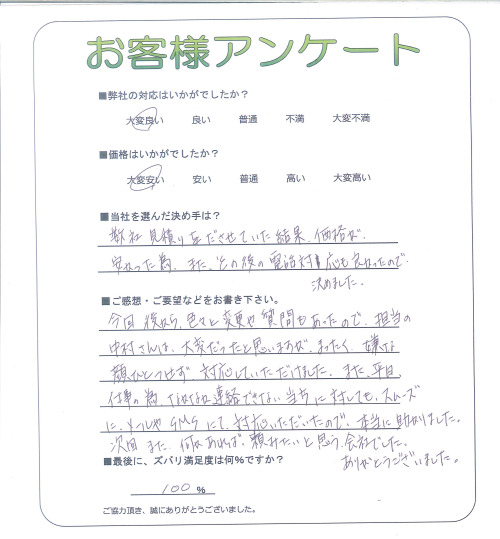 お客様アンケート
■弊社の対応はいかがでしたか？
大変良い 良い 普通 不満 大変不満
■価格はいかがでしたか？
大変安い 安い 普通 高い 大変高い
■当社を選んだ決め手は？
数社見積り出させていた結果、価格が、
安かった為、また、その後の電話対応も良かったので、
決めました。
■ご感想・ご要望などをお書き下さい。
今回 後から、色々と変更や質問もあったので、担当の
中村さんは、大変だったと思いますが、まったく、嫌な
顔ひとつせず、対応していただけました。また、平日、
仕事の為、なかなか連絡できない当方に対しても、スムーズ
に、メールやSMSにて、対応いただいたので、本当に助かりました。
次回 また、何かあれば、頼みたいと思う、会社でした。
ありがとうございました。
■最後に、ズバリ満足度は何％ですか？
100 ％
ご協力頂き、誠にありがとうございました。